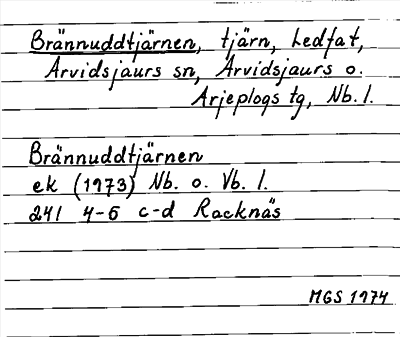 Brännuddtjärnen, tjärn, Ledfat,
Arvidsjaurs sn, Arvidsjaurs o.
Arjeplogs tg, Nb. l.
Brännuddtjärnen
ek (1973) Nb. o. Vb. l.
241 4-5 c-d Racknäs
MGS 1974